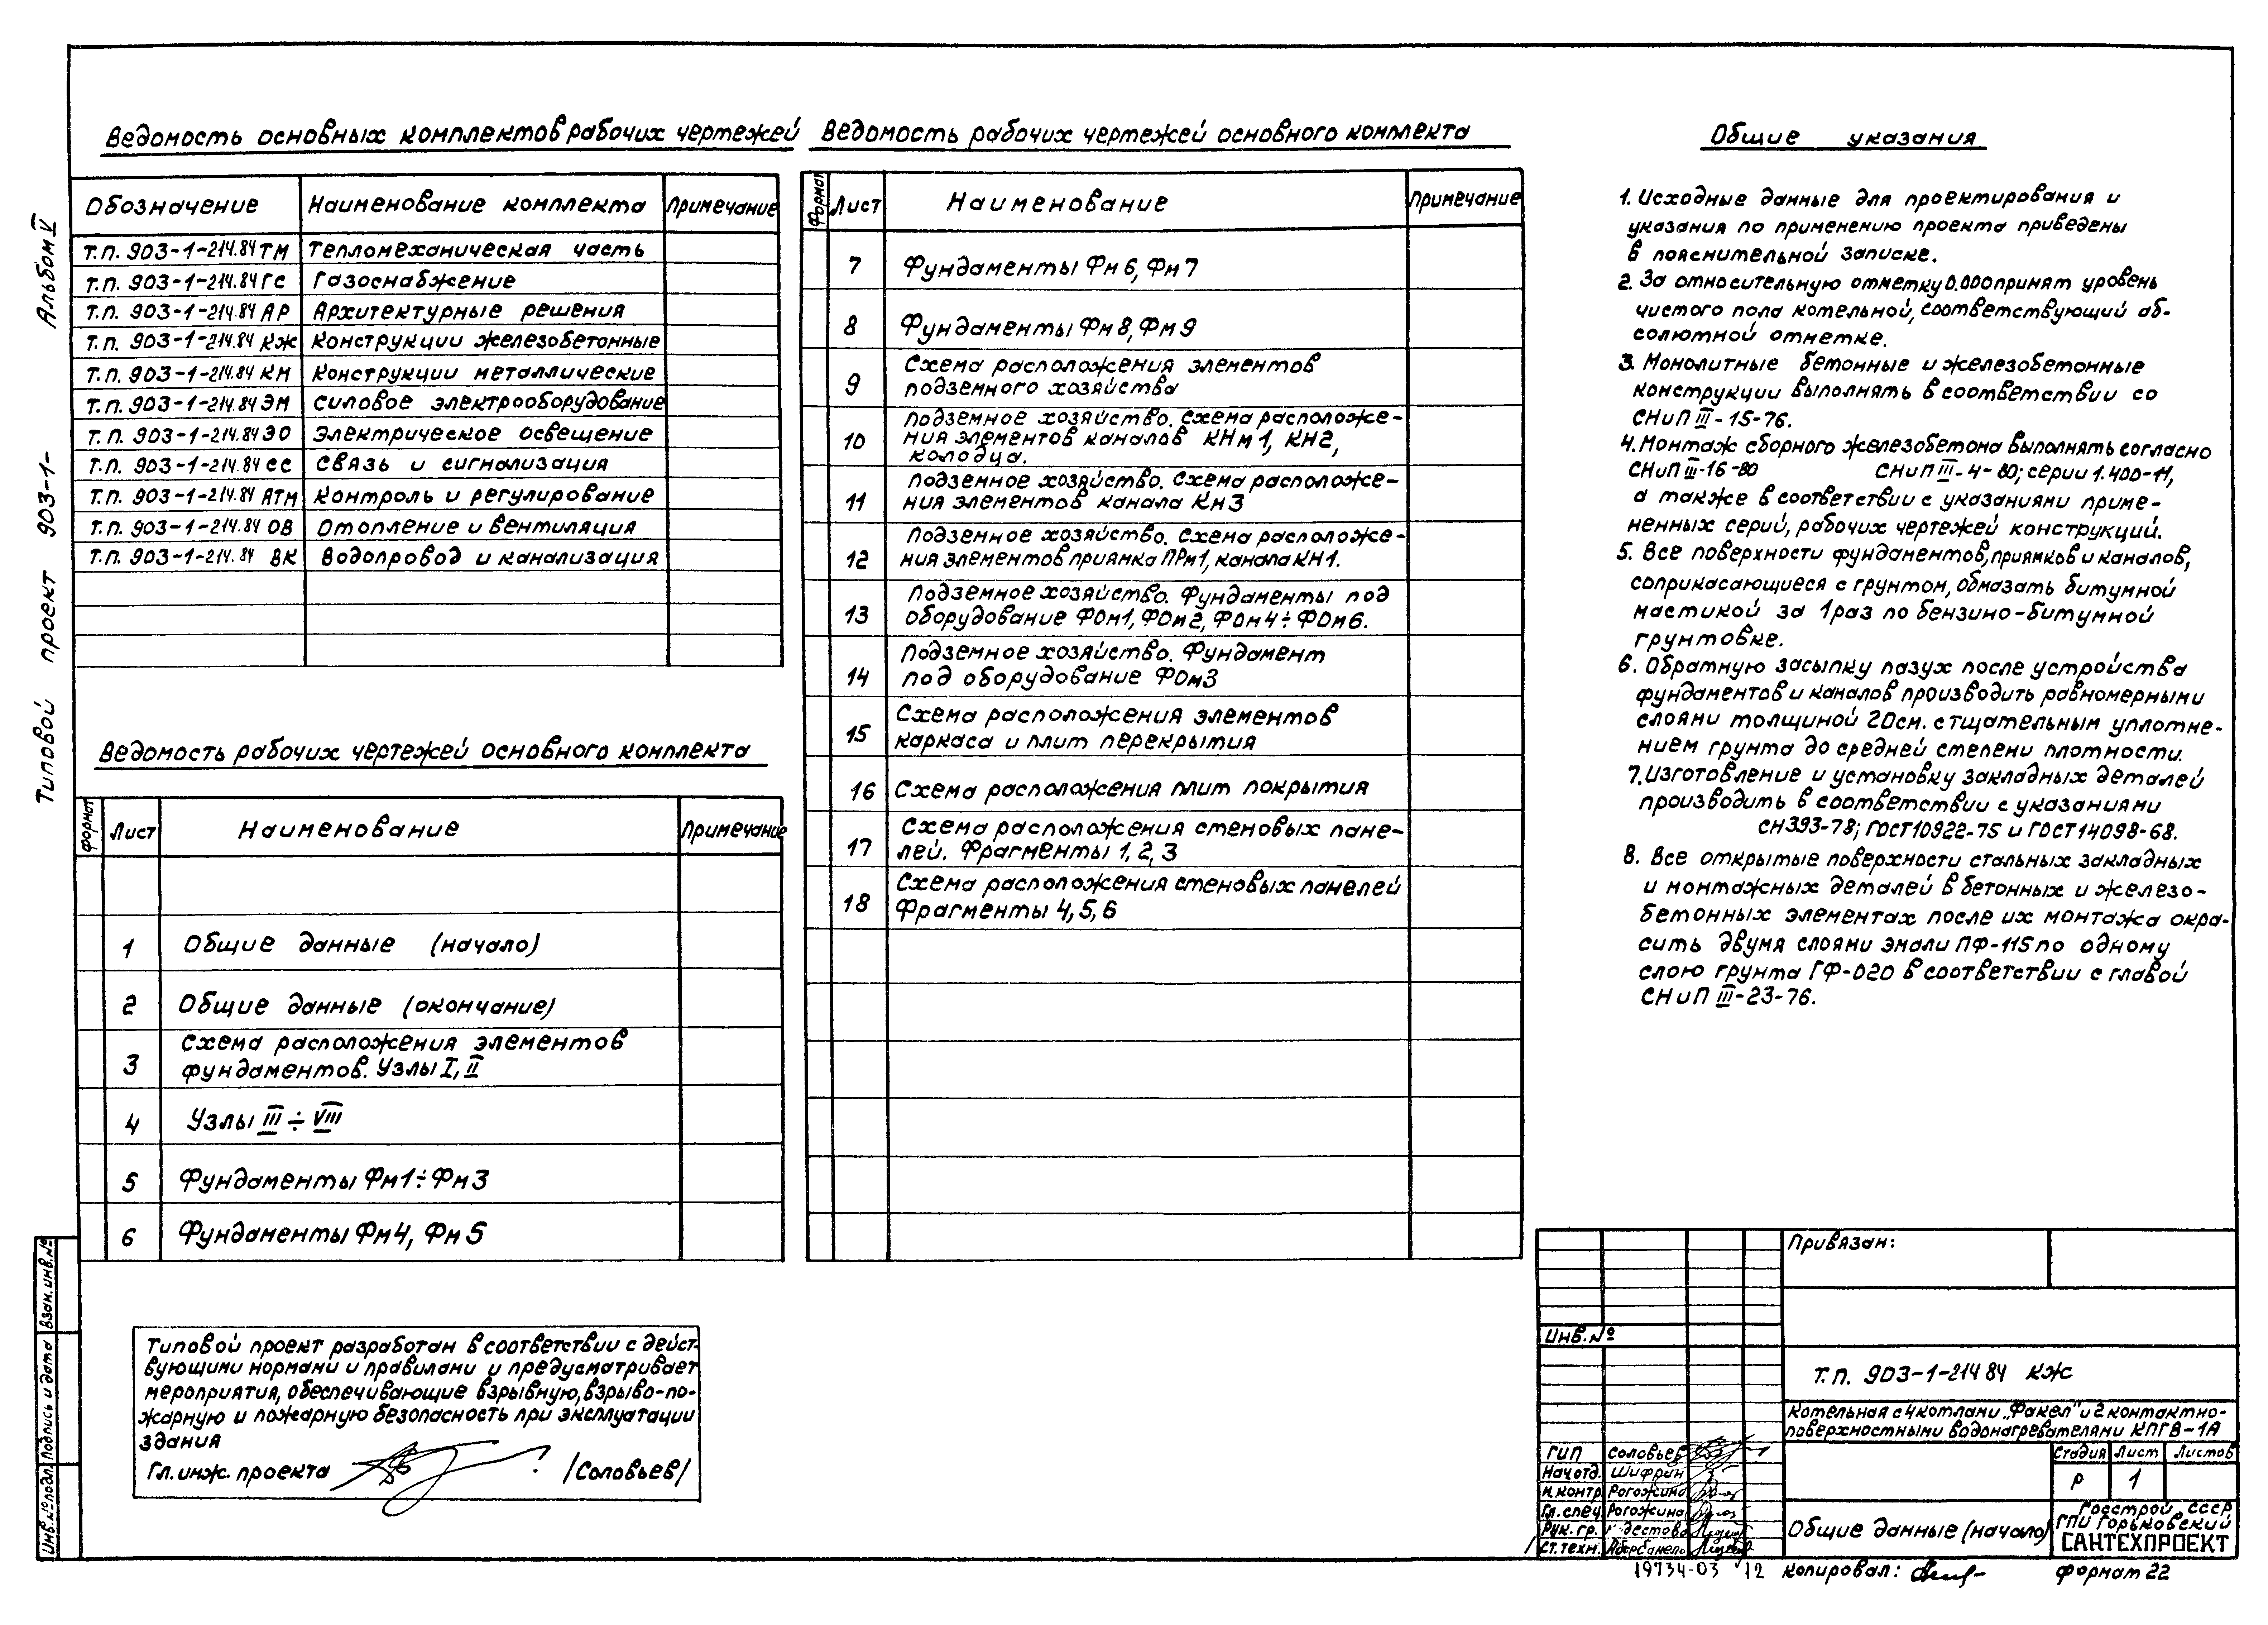 Альбом V
Типовой проект 903-1-
Ведомость основных комплектов рабочих чертежей
Обозначение Наименование комплекта Примечание
Т.п. 903-1-214.84 ТМ Тепломеханическая часть
Т.п. 903-1-214.84 ГС Газоснабжение
Т.п. 903-1-214.84 АР Архитектурные решения
Т.п. 903-1-214.84 КЖ Конструкции железобетонные
Т.п. 903-1-214.84 КМ Конструкции металлические
Т.п. 903-1-214.84 ЭМ Силовое электрооборудование
Т.п. 903-1-214.84 ЭО Электрическое освещение
Т.п. 903-1-214.84 СС Связь и сигнализация
Т.п. 903-1-214.84 АТМ Контроль и регулирование
Т.п. 903-1-214.84 ОВ Отопление и вентиляция
Т.п. 903-1-214.84 ВК Водопровод и канализация
Ведомость рабочих чертежей основного комплекта
Формат Лист Наименование Примечание
1 Общие данные (начало)
2 Общие данные (окончание)
3 Схема расположения элементов
фундаментов. Узлы I, II
4 Узлы III ÷ VIII
5 Фундаменты Фм1÷Фм3
6 Фундаменты Фм4, Фм5
Ведомость рабочих чертежей основного комплекта
Формат Лист Наименование Примечание
7 Фундаменты Фм6, Фм7
8 Фундаменты Фм8, Фм9
9 Схема расположения элементов
подземного хозяйства
10 Подземное хозяйство. Схема расположе-
ния элементов каналов КНм1, КН2,
колодца.
11 Подземное хозяйство. Схема расположе-
ния элементов канала Кн3
12 Подземное хозяйство. Схема расположе-
ния элементов приямка ПРм1, канала КН1.
13 Подземное хозяйство. Фундаменты под
оборудование ФОм1, ФОм2, ФОм4÷ФОм6.
14 Подземное хозяйство. Фундамент
под оборудование ФОм3
15 Схема расположения элементов
каркаса и плит перекрытия
16 Схема расположения плит покрытия
17 Схема расположения стеновых пане-
лей. Фрагменты 1, 2, 3
18 Схема расположения стеновых панелей
Фрагменты 4, 5, 6
Общие указания
1. Исходные данные для проектирования и
указания по применению проекта приведены
в пояснительной записке.
2. За относительную отметку 0.000 принят уровень
чистого пола котельной, соответствующий аб-
солютной отметке.
3. Монолитные бетонные и железобетонные
конструкции выполнять в соответствии со
СНиП III-15-76.
4. Монтаж сборного железобетона выполнять согласно
СНиП III-16-80 СНиП III-4-80; серии 1.400-11,
а также в соответствии с указаниями приме-
ненных серий, рабочих чертежей конструкций.
5. Все поверхности фундаментов, приямков и каналов,
соприкасающиеся с грунтом, обмазать битумной
мастикой за 1 раз по бензино-битумной
грунтовке.
6. Обратную засыпку пазух после устройства
фундаментов и каналов производить равномерными
слоями толщиной 20см. с тщательным уплотне-
нием грунта до средней степени плотности.
7. Изготовление и установку закладных деталей
производить в соответствии с указаниями
СН393-78; ГОСТ10922-75 и ГОСТ14098-68.
8. Все открытые поверхности стальных закладных
и монтажных деталей в бетонных и железо-
бетонных элементах после их монтажа окра-
сить двумя слоями эмали ПФ-115 по одному
слою грунта ГФ-020 в соответствии с главой
СНиП III-23-76.
Типовой проект разработан в соответствии с дейст-
вующими нормами и правилами и предусматривает
мероприятия, обеспечивающие взрывную, взрыво-по-
жарную и пожарную безопасность при эксплуатации
здания
Гл. инж. проекта /Соловьев/
Инв.№подл. Подпись и дата Взам.инв.№
Привязан:
Инв.№
Т.п. 903-1-214 84 КЖ
Котельная с 4 котлами „Факел" и 2 контактно-
поверхностными водонагревателями КПГВ-1А
ГИП Соловьев
Нач отд. Шифрин
Н.контр Рогожина
Гл.спец. Рогожина
Рук. гр.
Ст.техн.
Стадия Лист Листов
Р 1
Общие данные (начало)
Госстрой СССР
ГПИ Горьковский
САНТЕХПРОЕКТ
19734-03 12 Копировал: Формат 22